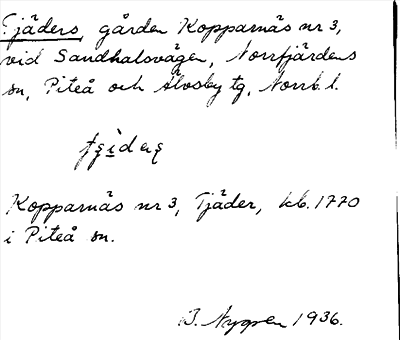 Tjäders, gården Kopparnäs nr 3,
vid Sandholsvägen, Norrfjärdens
sn, Piteå och Älvsby tg, Norrb. l.
Kopparnäs nr 3, Tjäder, kb. 1770
i Piteå sn.
B. Nygren 1936.